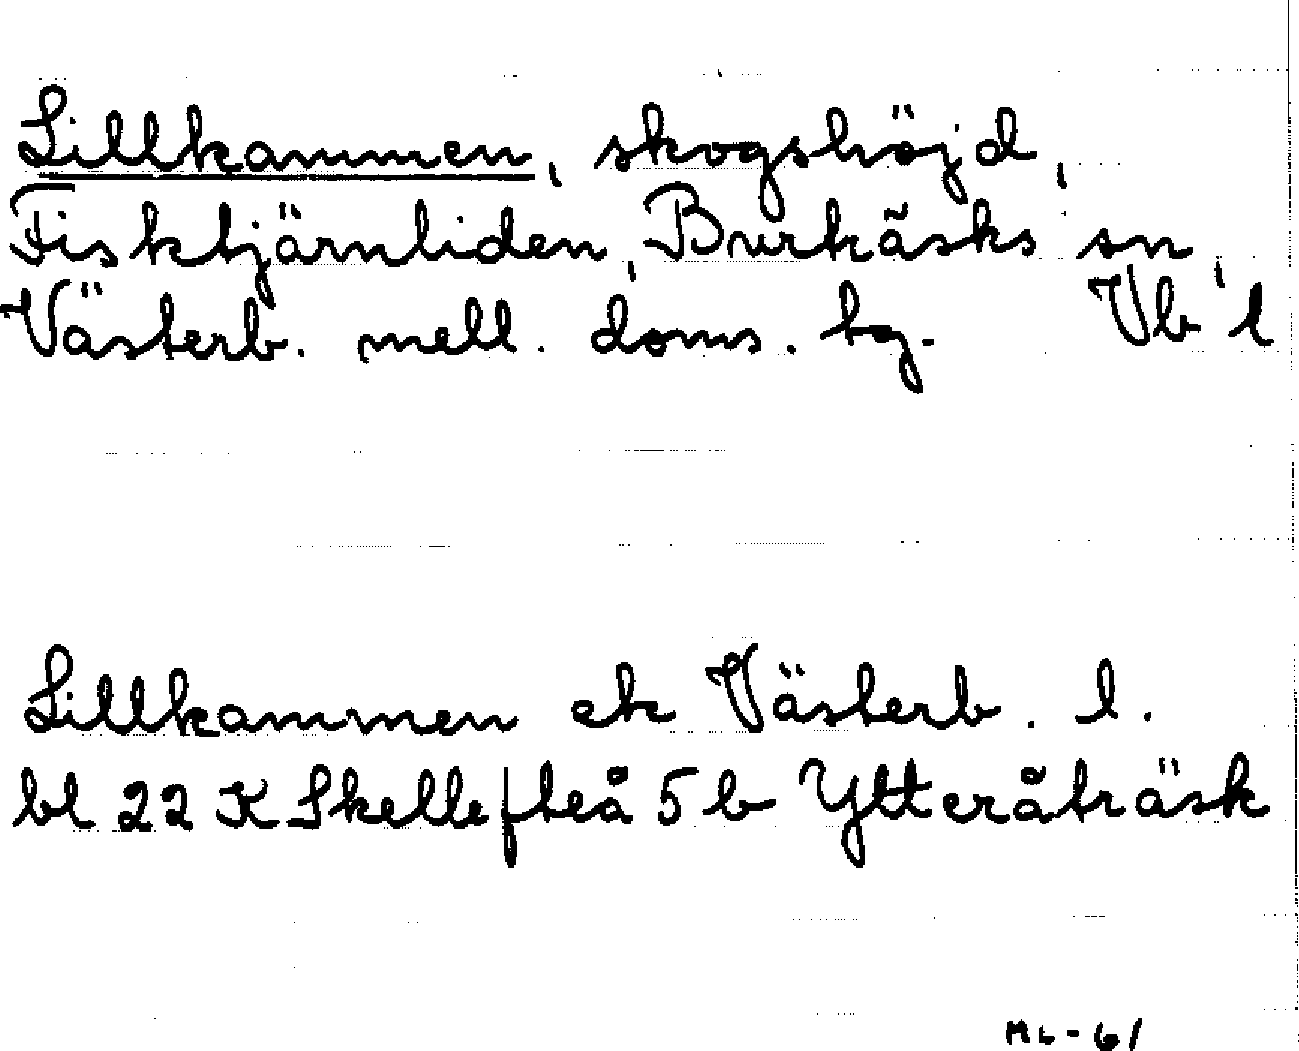 Lillkammen, skogshöjd,
Fisktjärnliden, Burträsks sn,
Västerb. mell. doms. tg. Vb l
Lillkammen ek Västerb. l.
bl 22 K Skellefteå 5 b Ytteråträsk
ML-61